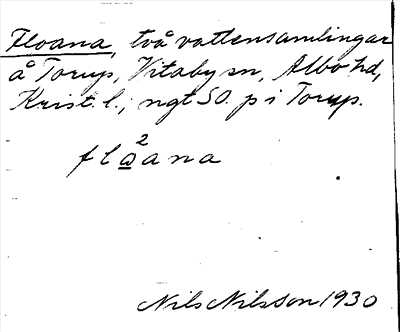 Floana, två vattensamlingar
å Torup, Vitaby sn, Albo hd,
Krist. l.; ngt SO. p i Torup.
flo̲²ana
Nils Nilsson 1930